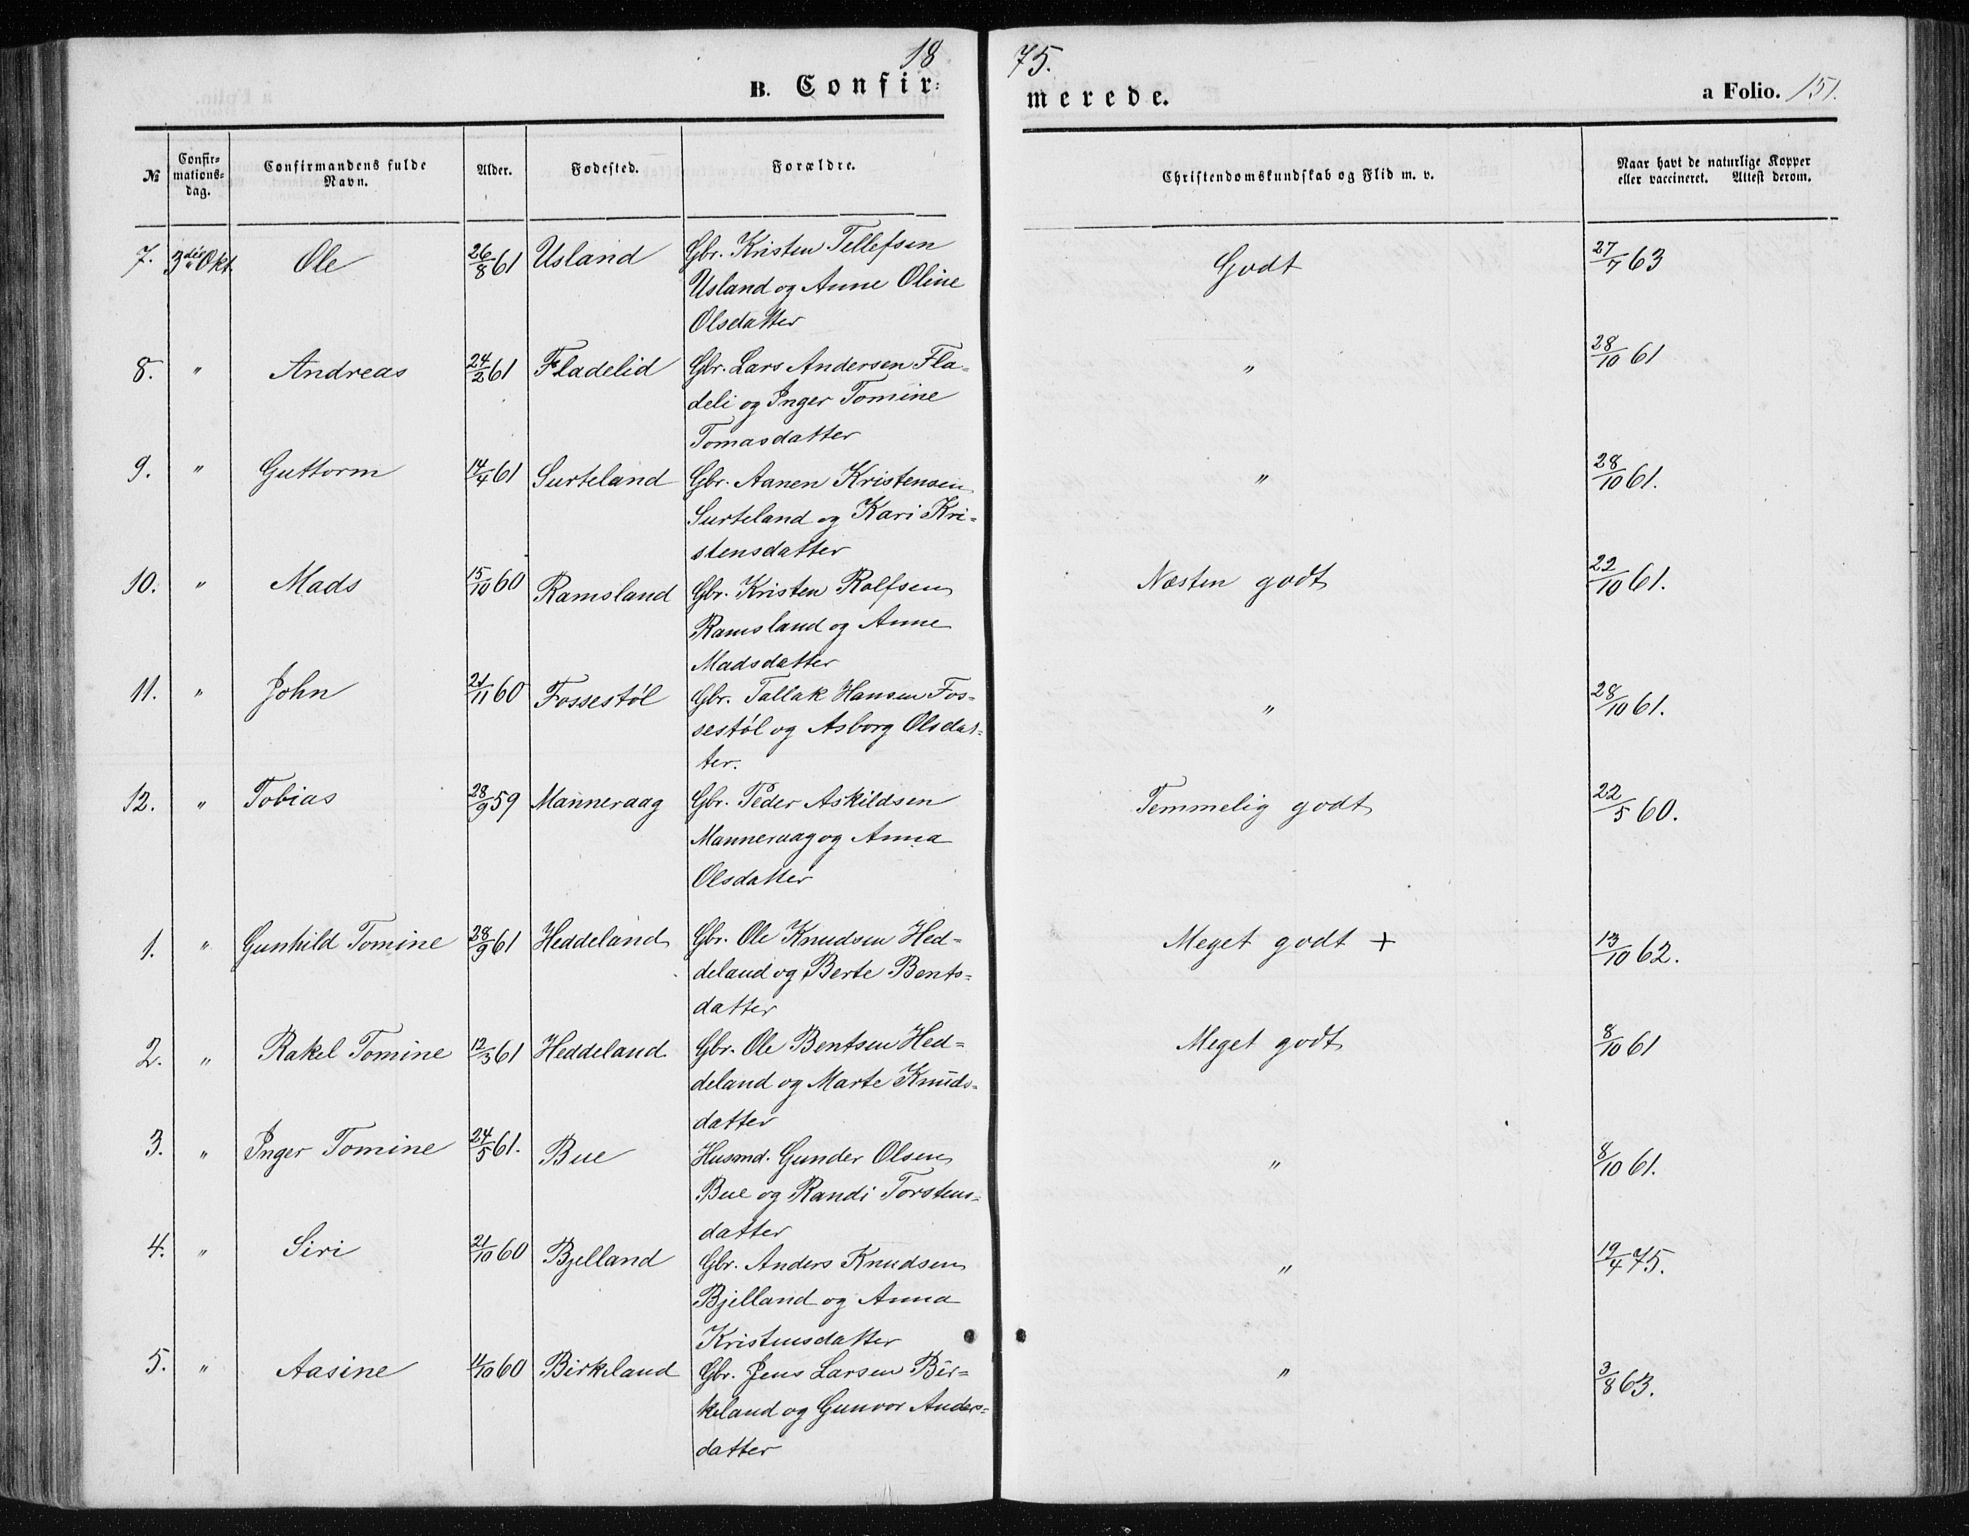 1875.
B. Confirmerede.
a Folio. 151.
№ Confirmationsdag. Confirmandens fulde Navn. Alder. Fødested. Forældre. Christendomskundskab og Flid m. v. Naar havt de naturlige Kopper eller vaccineret. Attest derom.
7. 3die Okt. Ole 26/8 61 Usland Gbr. Kristen Tellefsen Godt 27/7 63
Usland og Anne Oline
Olsdatter
8. " Andreas 24/2 61 Fladelid Gbr. Lars Andersen Fla- " 28/10 61
deli og Inger Tomine
Tomasdatter
9. " Guttorm 14/4 61 Surteland Gbr. Aanen Kristensen " 28/10 61.
Surteland og Kari Kri-
stensdatter
10. " Mads 15/10 60 Ramsland Gbr. Kristen Rolfsen Næsten godt 22/10 61.
Ramsland og Anne
Madsdatter
11. " John 21/11 60 Fossestøl Gbr. Tallak Hansen Fos- " 28/10 61.
sestøl og Asborg Olsdat-
ter.
12. " Tobias 28/9 59 Manneraag Gbr. Peder Askildsen Temmelig godt 22/5 60.
Manneraag og Anna
Olsdatter
1. " Gunhild Tomine 28/9 61 Heddeland Gbr. Ole Knudsen Hed- Meget godt + 13/10 62.
deland og Berte Bents-
datter
2. " Rakel Tomine 12/3 61 Heddeland Gbr. Ole Bentsen Hed- Meget godt 8/10 61
deland og Marte Knuds-
datter
3. " Inger Tomine 24/5 61. Bue Husmd. Gunder Olsen " 8/10 61.
Bue og Randi Torstens-
datter
4. " Siri 21/10 60 Bjelland Gbr. Anders Knudsen " 19/4 75.
Bjelland og Anna
Kristensdatter
5. " Aasine 4/10 60 Birkeland Gbr. Jens Larsen Bir- " 3/8 63.
keland og Gunvor Anders-
datter